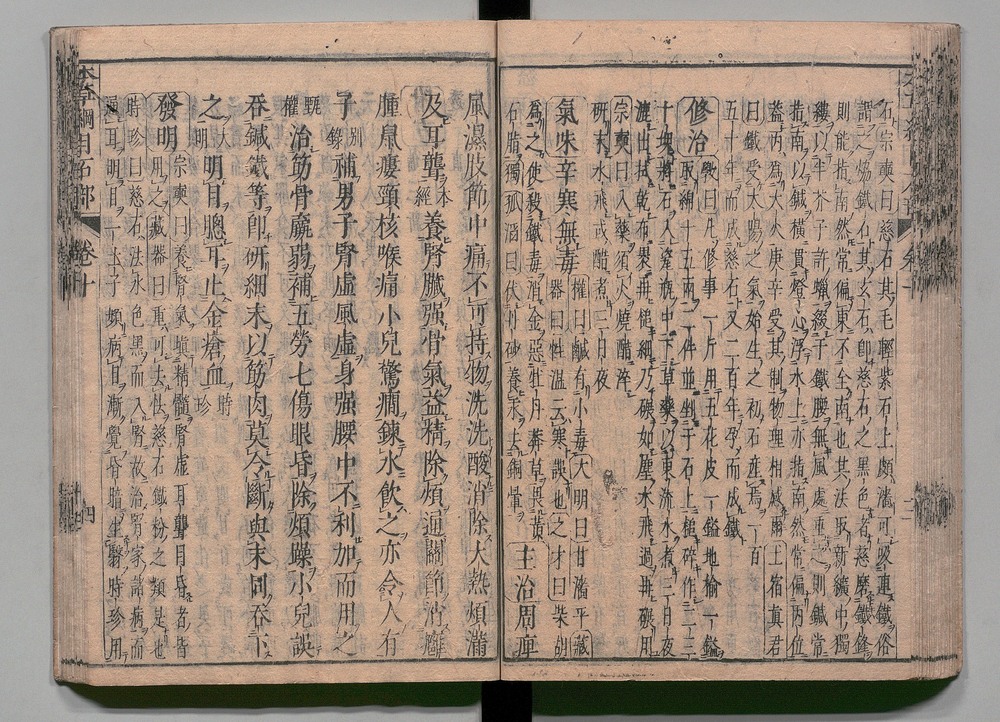 石宗奭曰慈石其毛輕紫石上頗濇可吸連鐵俗
謂之熁鐵石其玄石即慈石之黑色者慈磨鐵鋒
則能指南然常偏東不全南也其法取新纊中獨
縷以半芥子許蠟綴于鐵腰無風處垂之則鍼常
指南以鍼橫貫燈心浮水上亦指南然常偏丙位
蓋丙爲大火庚辛受其制物理相感爾土宿真君
曰鐵受太陽之氣始生之初石産焉一百
五十年而成慈石又二百年孕而成鐵
修治斅曰凡修事一斤用五花皮一鎰地榆一鎰
取綿十五兩三件並剉于石上槌碎作二三
十塊將石入瓷瓶中下草藥以東流水煮三日夜
漉出拭乾布裹再槌細乃碾如塵水飛過再碾用
宗奭曰入藥須火燒醋淬
研末水飛或醋煮三日夜
氣味辛寒無毒權曰鹹有小毒大明曰甘濇平藏
器曰性溫云寒誤也之才曰柴胡
爲之使殺鐵毒消金惡牡丹莽草畏黃
石脂獨孤滔曰伏丹砂養汞去銅暈主治周痺
風濕肢節中痛不可持物洗洗酸消除大熱煩滿
及耳聾本經養腎臟强骨氣益精除煩通關節消癰
腫鼠瘻頸核喉痛小兒驚癎鍊水飲之亦令人有
子別錄補男子腎虛風虛身强腰中不利加而用之
甄權治筋骨羸弱補五勞七傷眼昏除煩躁小兒誤
吞鍼鐵等卽研細末以筋肉莫令斷與末同吞下
之大明明目聰耳止金瘡血時珍
發明宗奭曰養腎氣塡精髓腎虛耳聾目昏者皆
用之藏器曰重可去怯慈石鐵粉之類是也
時珍曰慈石法水色黑而入腎故治腎家諸病而
通耳明目一士子頻病目漸覺昏暗生翳時珍用
本草綱目石部
卷十